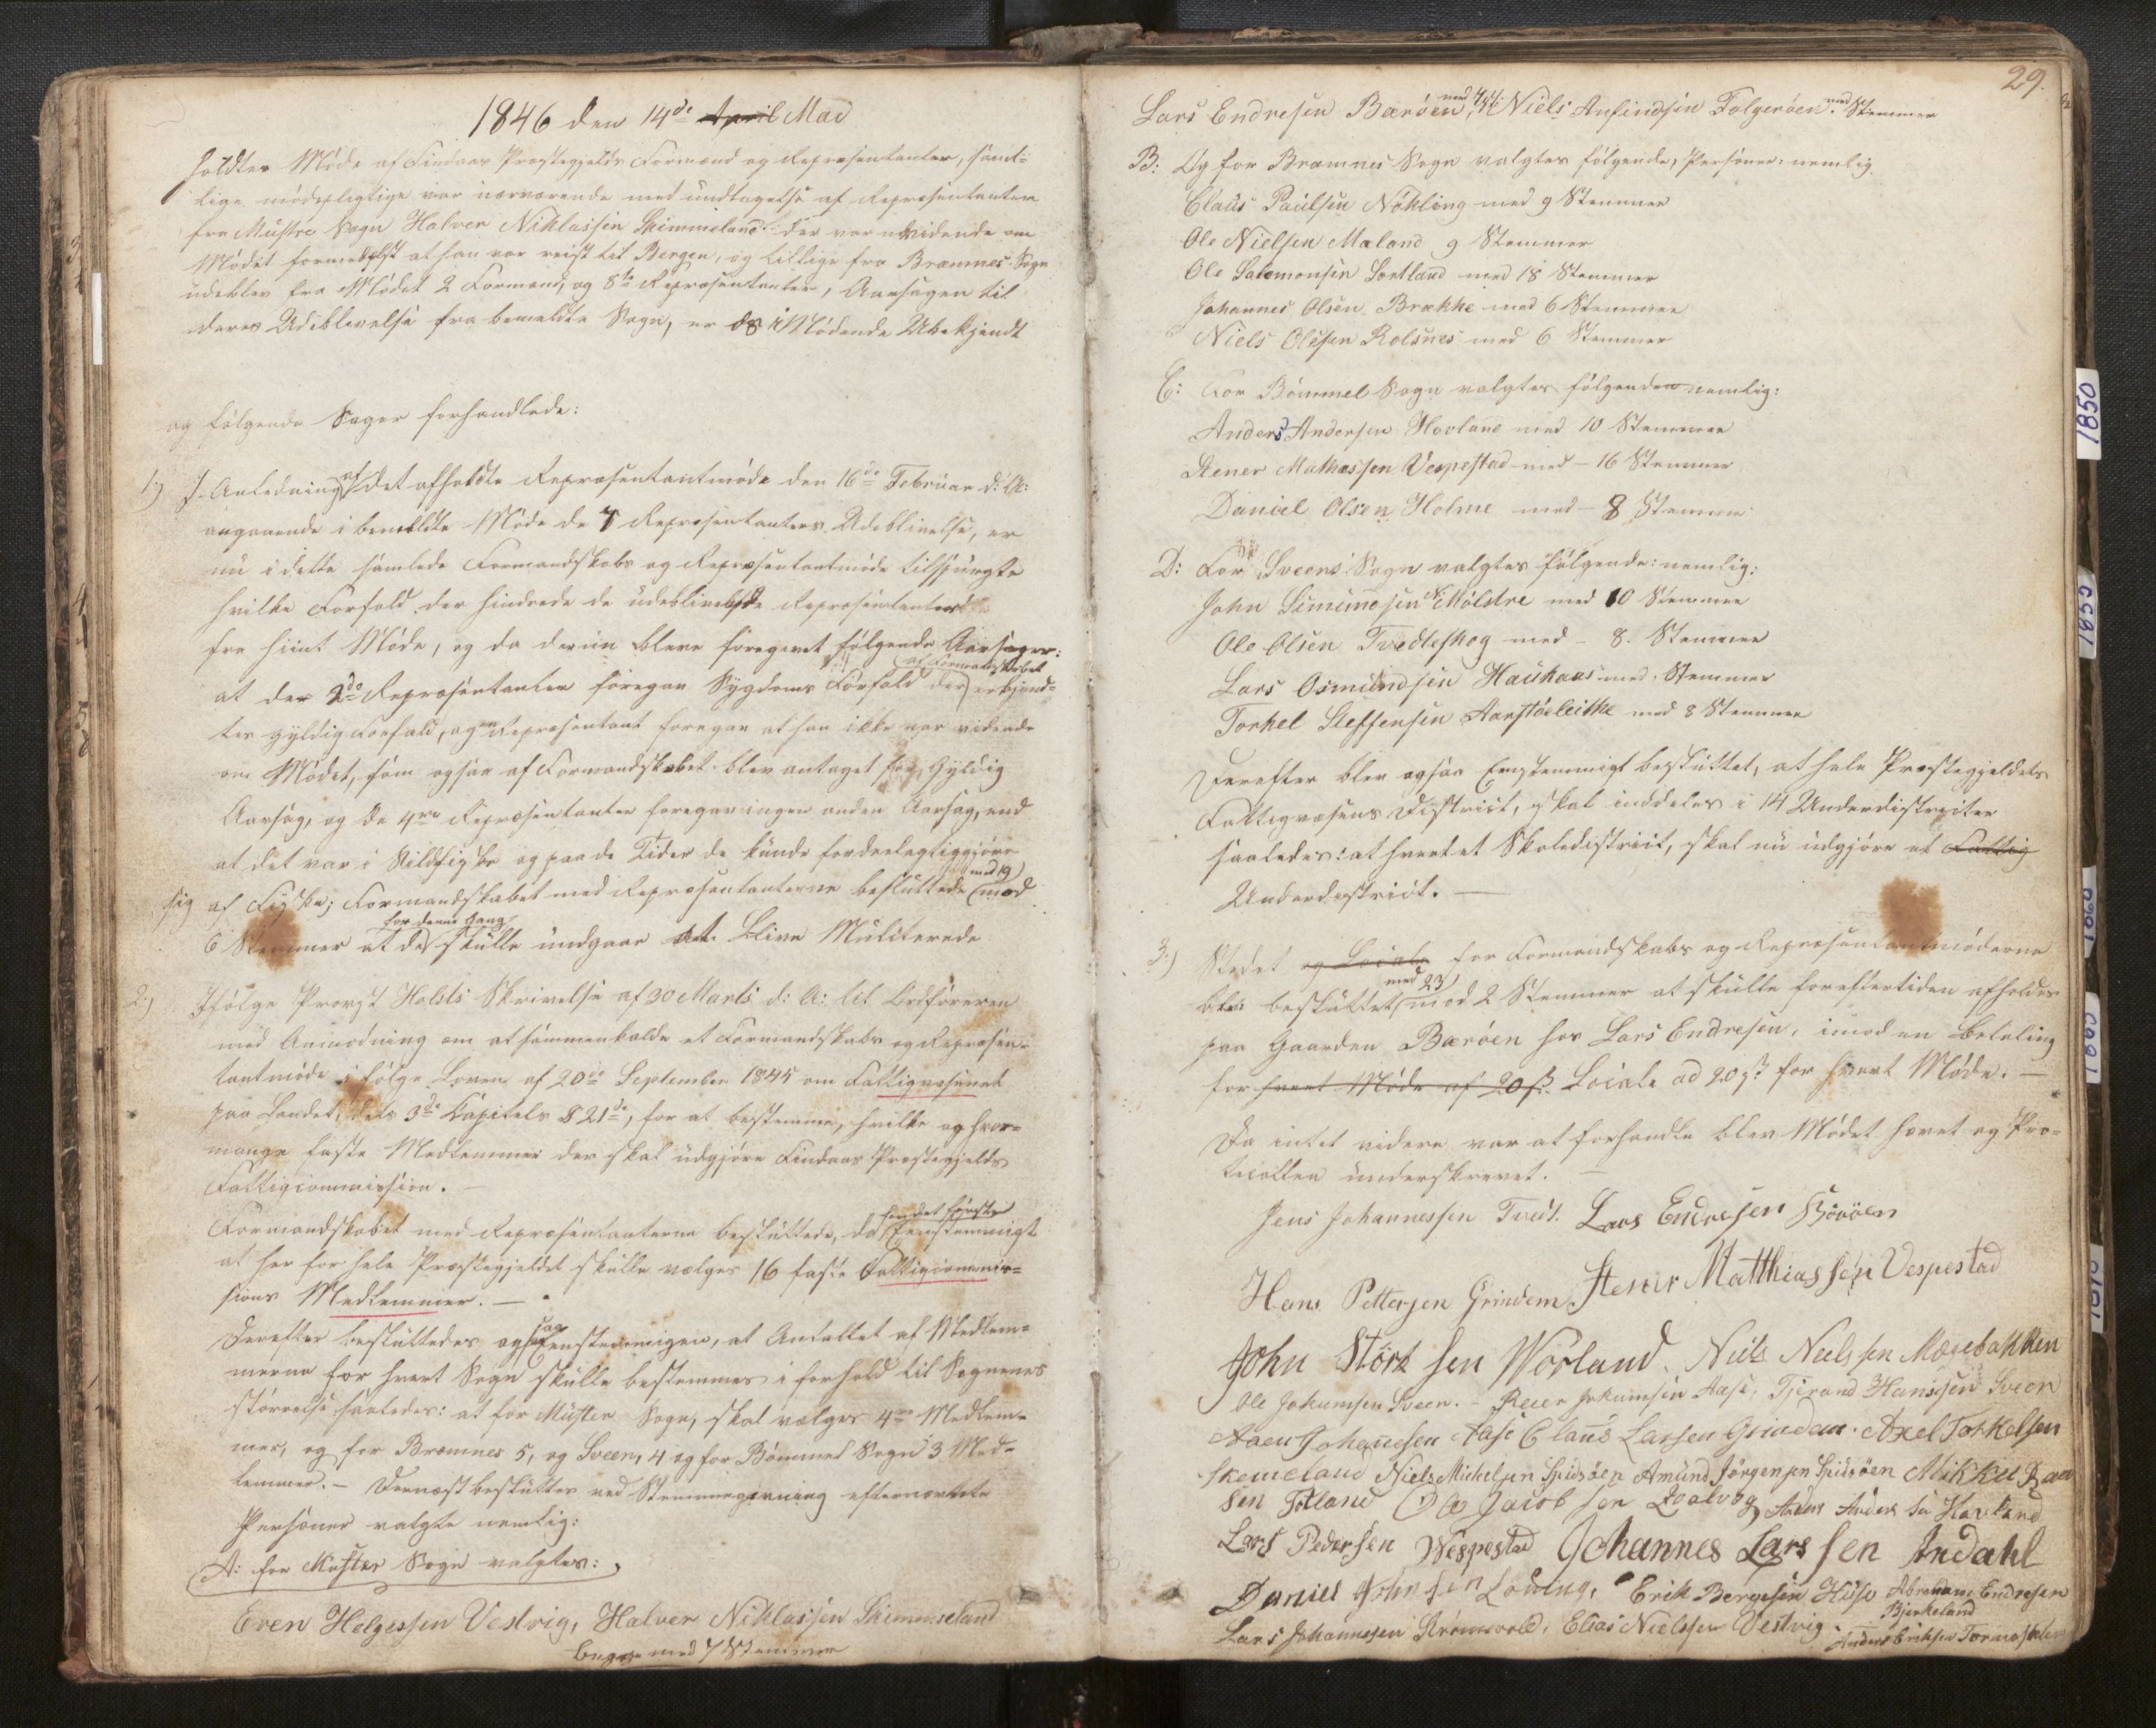 1846 den 14de April Mai
holdtes Møde af Findaas Præstegjelds Formænd og Repræsentanter, samt-
lige mødepligtige var nærværende med undtagelse af Repræsentanten
fra Mustre Sogn Halver Niklassen Skimmeland der var uvidende om
Mødet formedelst at han var reist til Bergen, og tillige fra Bræmnes Sogn
udeblev fra Mødet 2 Formænd, og 8te Repræsentanter, Aarsagen til
deres Udeblivelse fra bemeldte Sogn, er de i Mødende Ubekjendt
og følgende Sager forhandlede:
1.) I Anledning af det afholdte Repræsentantmøde den 16de Februar d: A:
angaaende i bemeldte Møde de 7 Repræsentanters Udeblivelse, er
nu i dette samlede Formandskabs og Repræsentantmøde tilspurgte
hvilke Forfald der hindrede de udeblivelste Repræsentanter
fra hiint Møde, og da derim bleve foregivet følgende Aarsager:
at der 2de Repræsentanter foregav Sygdoms Forfald der af Formandskabet erkjend-
tes gyldig Forfald, og en Repræsentant foregav at han ikke var vidende
om Mødet, som ogsaa af Formandskabet blev antaget for Gyldig
Aarsag, og de 4re Repræsentanter foregav ingen anden Aarsag, end
at det var i Sildfiske og paa de Tider de kunde fordeelagtiggjøre
sig af Fiske; Formandskabet med Repræsentanterne besluttede med 19 mod
6 Stemmer at de for denne Gang skulle undgaae at blive Mulcterede
2.) Ifølge Provst Holsts Skrivelse af 30 Marts d: A: til Ordføreren
med Anmodning om at sammenkalde et Formandskabs og Repræsen-
tantmøde i følge Loven af 20de September 1845 om Fattigvæsenet
paa Landet, dets 3de Capitels § 21de, for at bestemme, hvilke og hvor-
mange faste Medlemmer der skal udgjøre Findaas Præstegjelds
Fattigcommission.
Formandskabet med Repræsentanterne besluttede, da for det første Eenstemmigt
at her for hele Præstegjeldet skulle vælges 16 faste Fattigcommis-
sions Medlemmer. —
Derefter besluttedes ogsaa Eenstemmigen, at Antallet af Medlem-
merne for hvert Sogn skulle bestemmes i forhold til Sognenes
størrelse saaledes: at for Muster Sogn, skal vælges 4re Medlem-
mer, og for Bræmnes 5, og Sveen, 4 og for Bømmel Sogn 3 Med-
lemmer. — Dernæst besluttes ved Stemmegivning efternævnte
Personer valgte nemlig:
A: for Muster Sogn valgtes:
Even Helgessen Vestvig, Halver Niklassen Skimmeland
begge med 7 Stemmer
29.
Lars Endresen Bærøen, med 7 st: Niels Anfindsen Folgerøen med Stemmer
B: Og for Bræmnes Sogn valgtes følgende Personer: nemlig
Claus Paulsen Nøkling med 9 Stemmer
Ole Nielsen Mæland 9 Stemmer
Ole Salomonsen Sortland med 18 Stemmer
Johannes Olsen Brække med 6 Stemmer
Niels Olesen Rolsnes med 6 Stemmer
C: For Bømmel Sogn valgtes følgende nemlig:
Anders Andersen Hovland med 10 Stemmer
Stener Mathæssen Vespestad med — 16 Stemmer
Daniel Olsen Holme med — 8 Stemmer
D: For Sveens Sogn valgtes følgende: nemlig:
John Simimosen N. Mølstre med 10 Stemmer
Ole Olsen Tvedteskog med — 8. Stemmer
Lars Osmundsen Haukaas med Stemmer
Torkel Steffensen Aarstøeleithe med 8 Stemmer
Derefter blev ogsaa Eenstemmigt besluttet, at hele Præstegjeldets
Fattigvæsens District, skal inddeles i 14 Underdistricter
saaledes: at hvert et Skoledistrict, skal nu udgjøre et Fattig
Underdistrict. —
3.) Stedet og Locale for Formandskabs og Repræsentantmøderne
blev besluttet med 23 mod 2 Stemmer at skulle foreftertiden afholdes
paa Gaarden Bærøen hos Lars Endresen, imod en betaling
for hvert Møde af 20 ß. Locale ad 20 ß for hvert Møde. —
Da intet videre var at forhandle blev Mødet hævet og Pro-
tocollen underskrevet. —
Jens Johannessen Tveit. Lars Endresen Børøen
Hans Pettersen Grindem Stener Matthiassen Vespestad
John Størksen Wørland. Niels Neelssen Mæsebakken
Ole Johannsen Sveen. — Reier Johannsen Aase, Tjerand Hanssen Sveen
Johannesen Aase Claus Larsen Grindem. Axel Torkelsen
Skemeland Niels Mickelsen Spidsøen Amund Jørgensen Spidsøen Mikkel
sen Totland Ole Jacobsen Qvalvog Anders Andersen Havland
Lars Pedersen Wespestad Johannes Larssen Indahl
Daniel Johnsen Lovning, Erik Bergesen Huse Abraham Endresen
Bjerkeland
Lars Johannesen Strømsvold, Elias Nielssen Vestvig. Anders Eriksen
1850
1855
1860
1865
1870